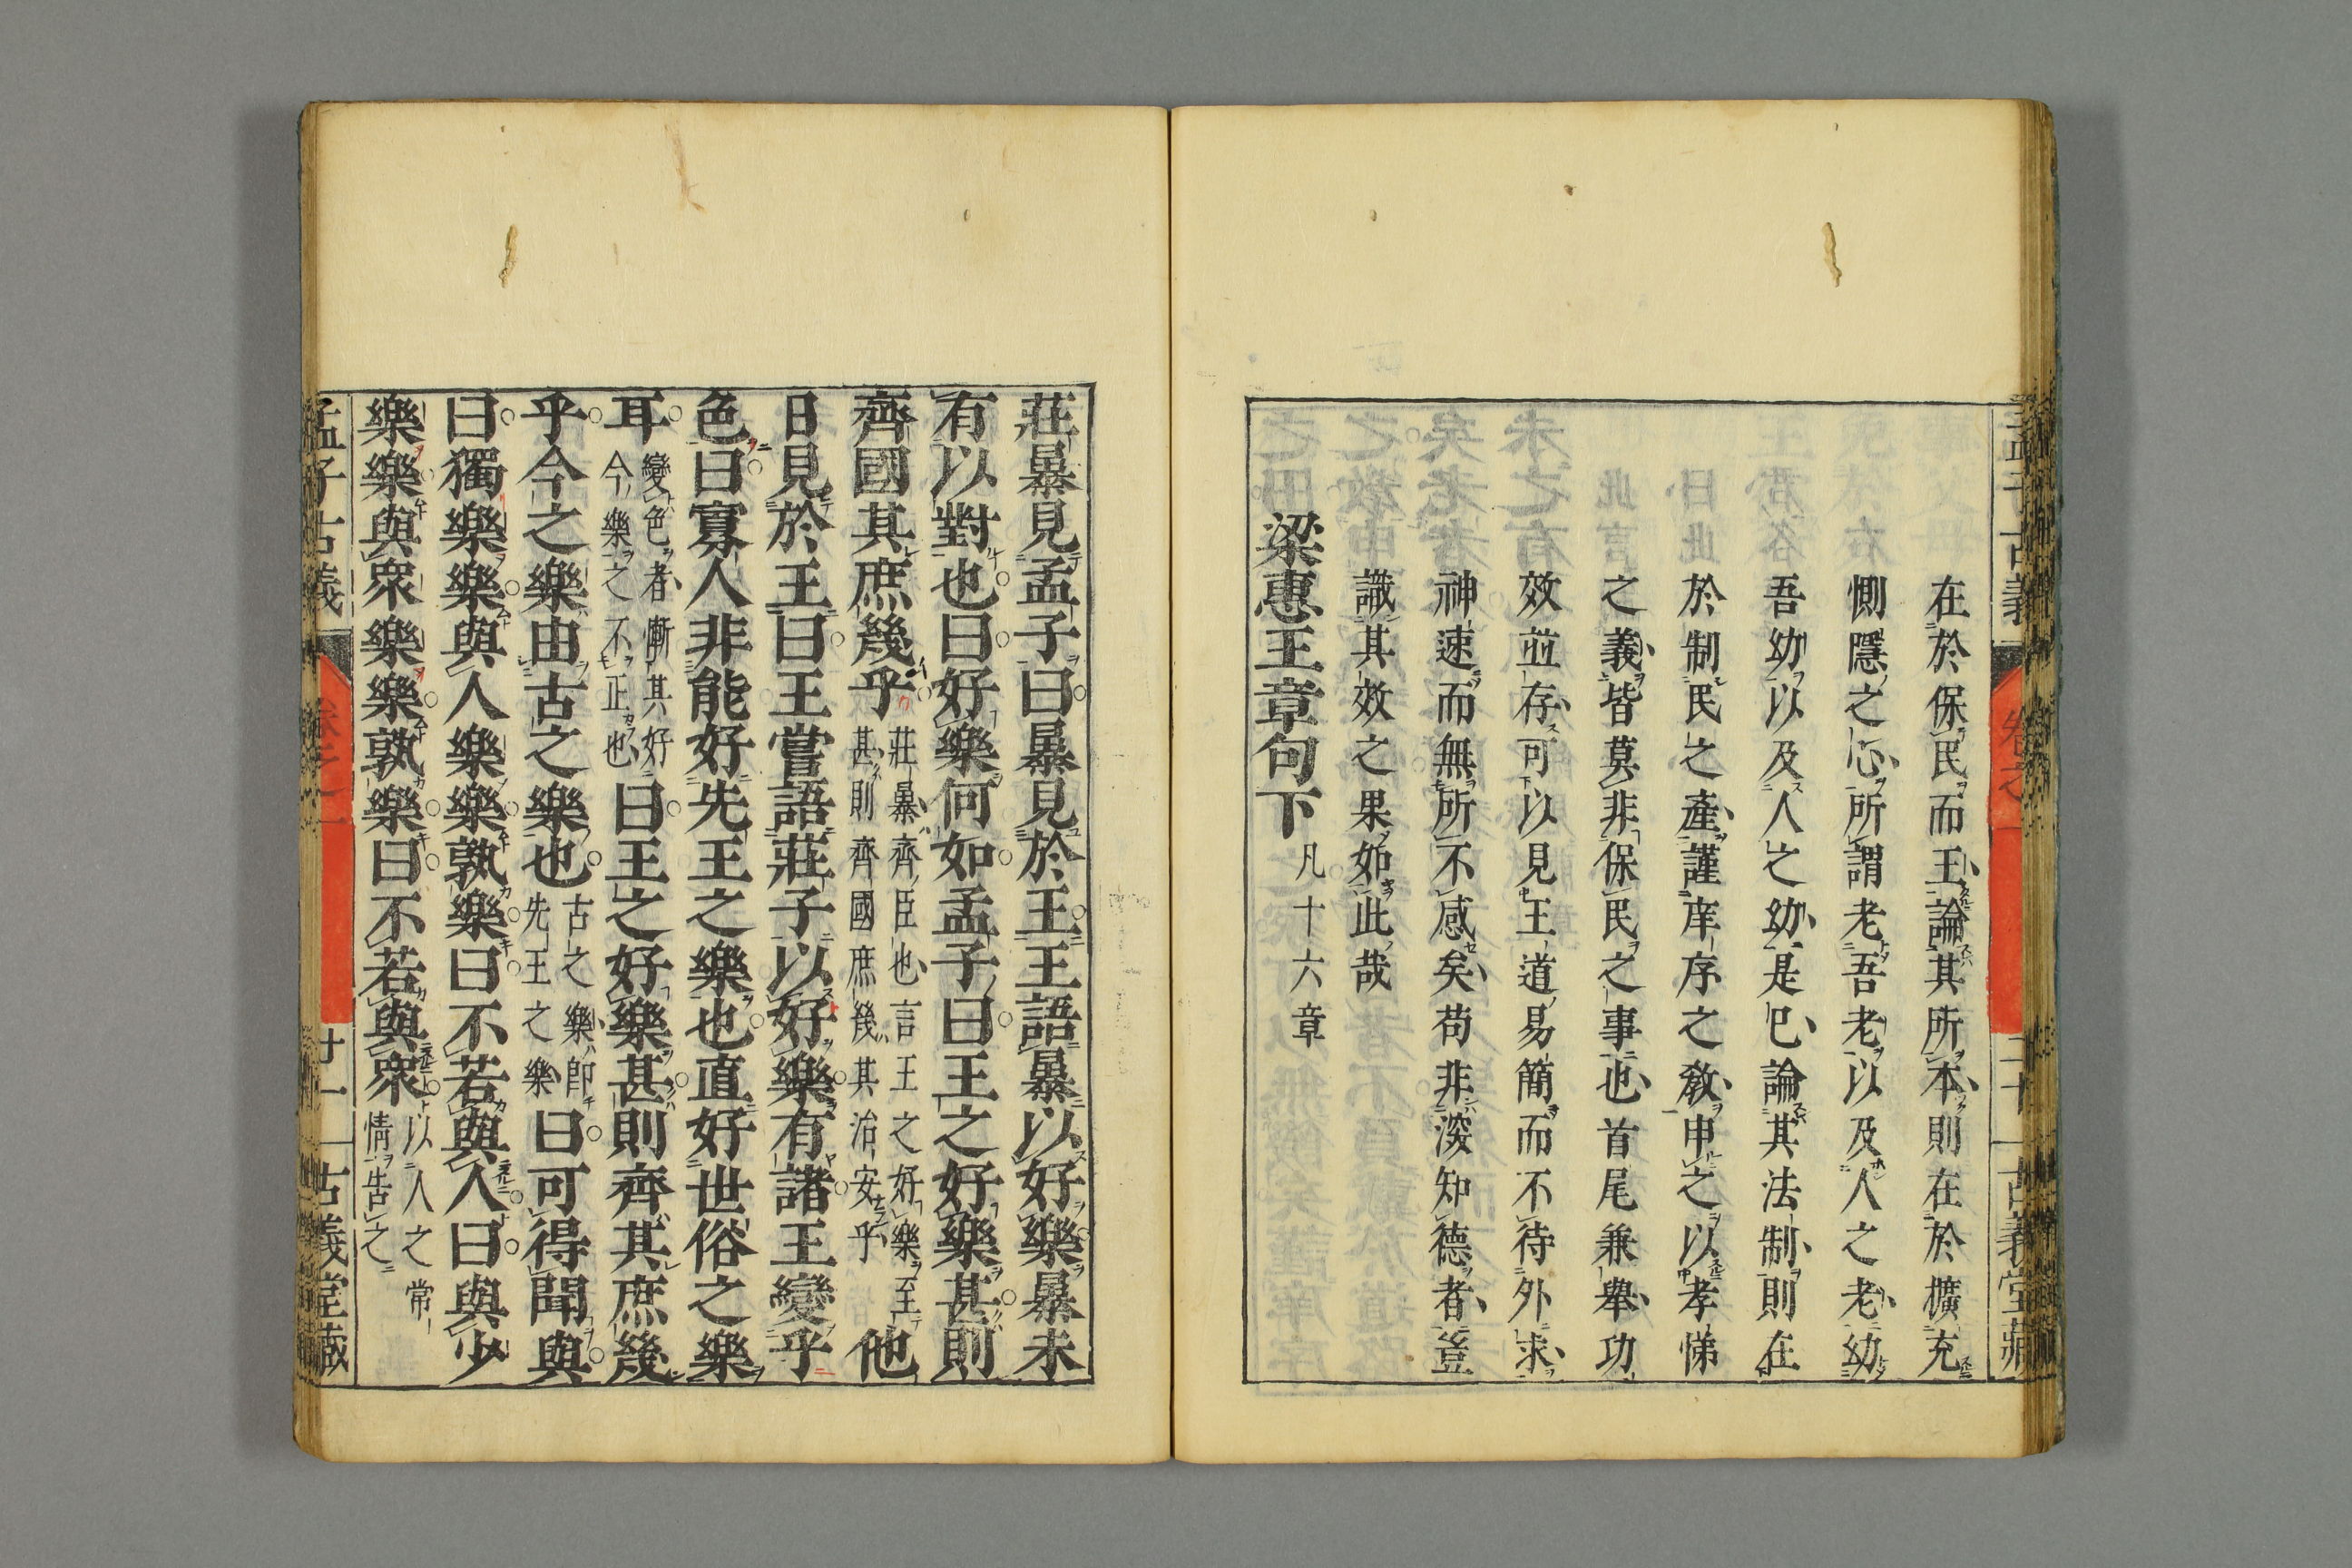 在於保民而王論其所本則在於擴充
惻隱之心所謂老吾老以及人之老幼
吾幼以及人之幼是已論其法制則在
於制民之產謹庠序之教申之以孝悌
之義皆莫非保民之事也首尾兼舉功
效並存可以見王道易簡而不待外求
神速而無所不感矣苟非深知德者豈
識其效之果如此哉
梁惠王章句下 凡十六章
莊暴見孟子曰暴見於王王語暴以好樂暴未
有以對也曰好樂何如孟子曰王之好樂甚則
齊國其庶幾乎 莊暴齊臣也言王之好樂至 甚則齊國庶幾其治安乎 他
日見於王曰王嘗語莊子以好樂有諸王變乎
色曰寡人非能好先王之樂也直好世俗之樂
耳 變色者慚其好 今樂之不正也 曰王之好樂甚則齊其庶幾
乎今之樂由古之樂也 古之樂即 先王之樂 曰可得聞與
曰獨樂樂與人樂樂孰樂曰不若與人曰與少
樂樂與眾樂樂孰樂曰不若與眾 以人之常 情告之
孟子古義 卷之一 廿一 古義堂藏